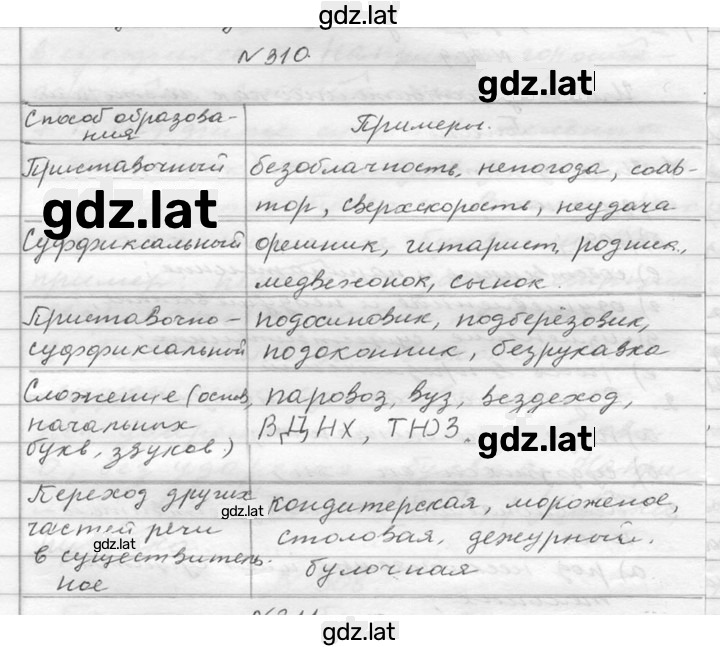 gdz.lat
N 310.
gdz.lat
Способ образова- Примеры.
ния
Приставочный безоблачность, непогода, соав-
gdz.lat тор, сверхскорость, неудача
Суффиксальный орешник, гитарист, родник,
медвежонок, сынок.
Приставочно- подосиновик, подберёзовик,
суффиксальный подоконник, безрукавка
Сложение (основ, паровоз, вуз, вездеход,
начальных ВДНХ, ТЮЗ.
букв, звуков) gdz.lat
Переход других кондитерская, мороженое,
gdz.lat
частей речи столовая, дежурный.
gdz.lat
в существитель- булочная
ное
gdz.lat